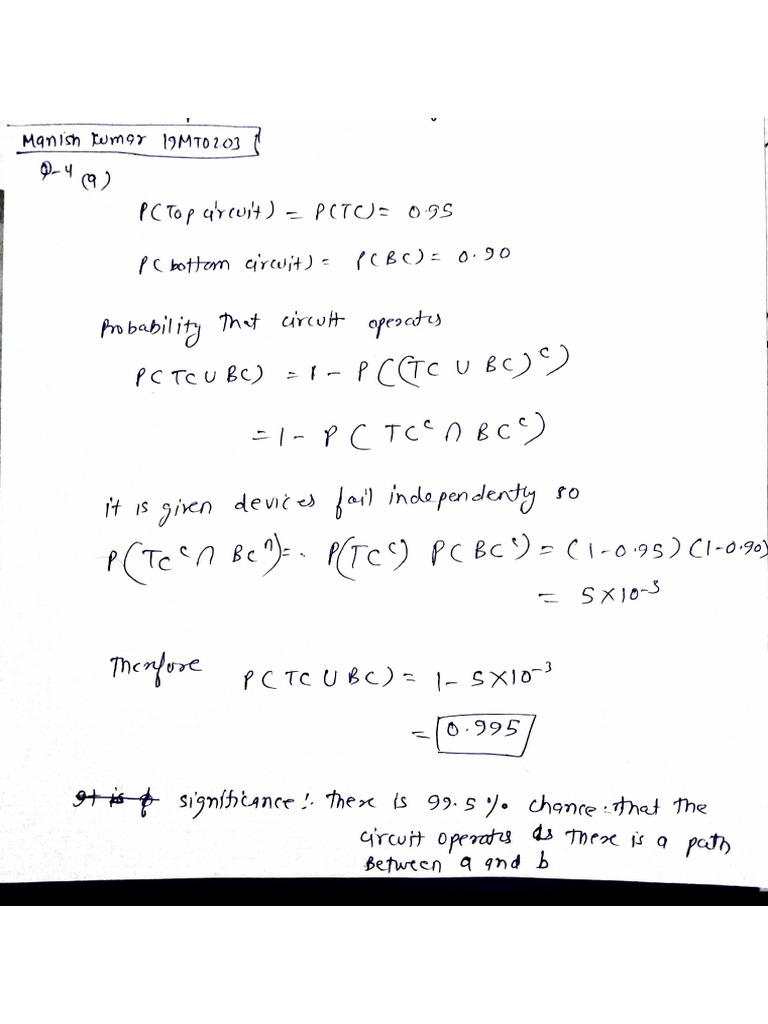 Manish Kumar 19MT0203
Q-4 (a)
P(Top circuit) = P(TC) = 0.95
P(bottom circuit) = P(BC) = 0.90
Probability that circuit operates
P(TC ∪ BC) = 1 - P((TC ∪ BC)ᶜ)
= 1 - P(TCᶜ ∩ BCᶜ)
it is given devices fail independently so
P(TCᶜ ∩ BCᶜ) = P(TCᶜ) P(BCᶜ) = (1-0.95)(1-0.90)
= 5×10⁻³
Therefore P(TC ∪ BC) = 1 - 5×10⁻³
= 0.995
significance: There is 99.5% chance that the
circuit operates as There is a path
Between a and b